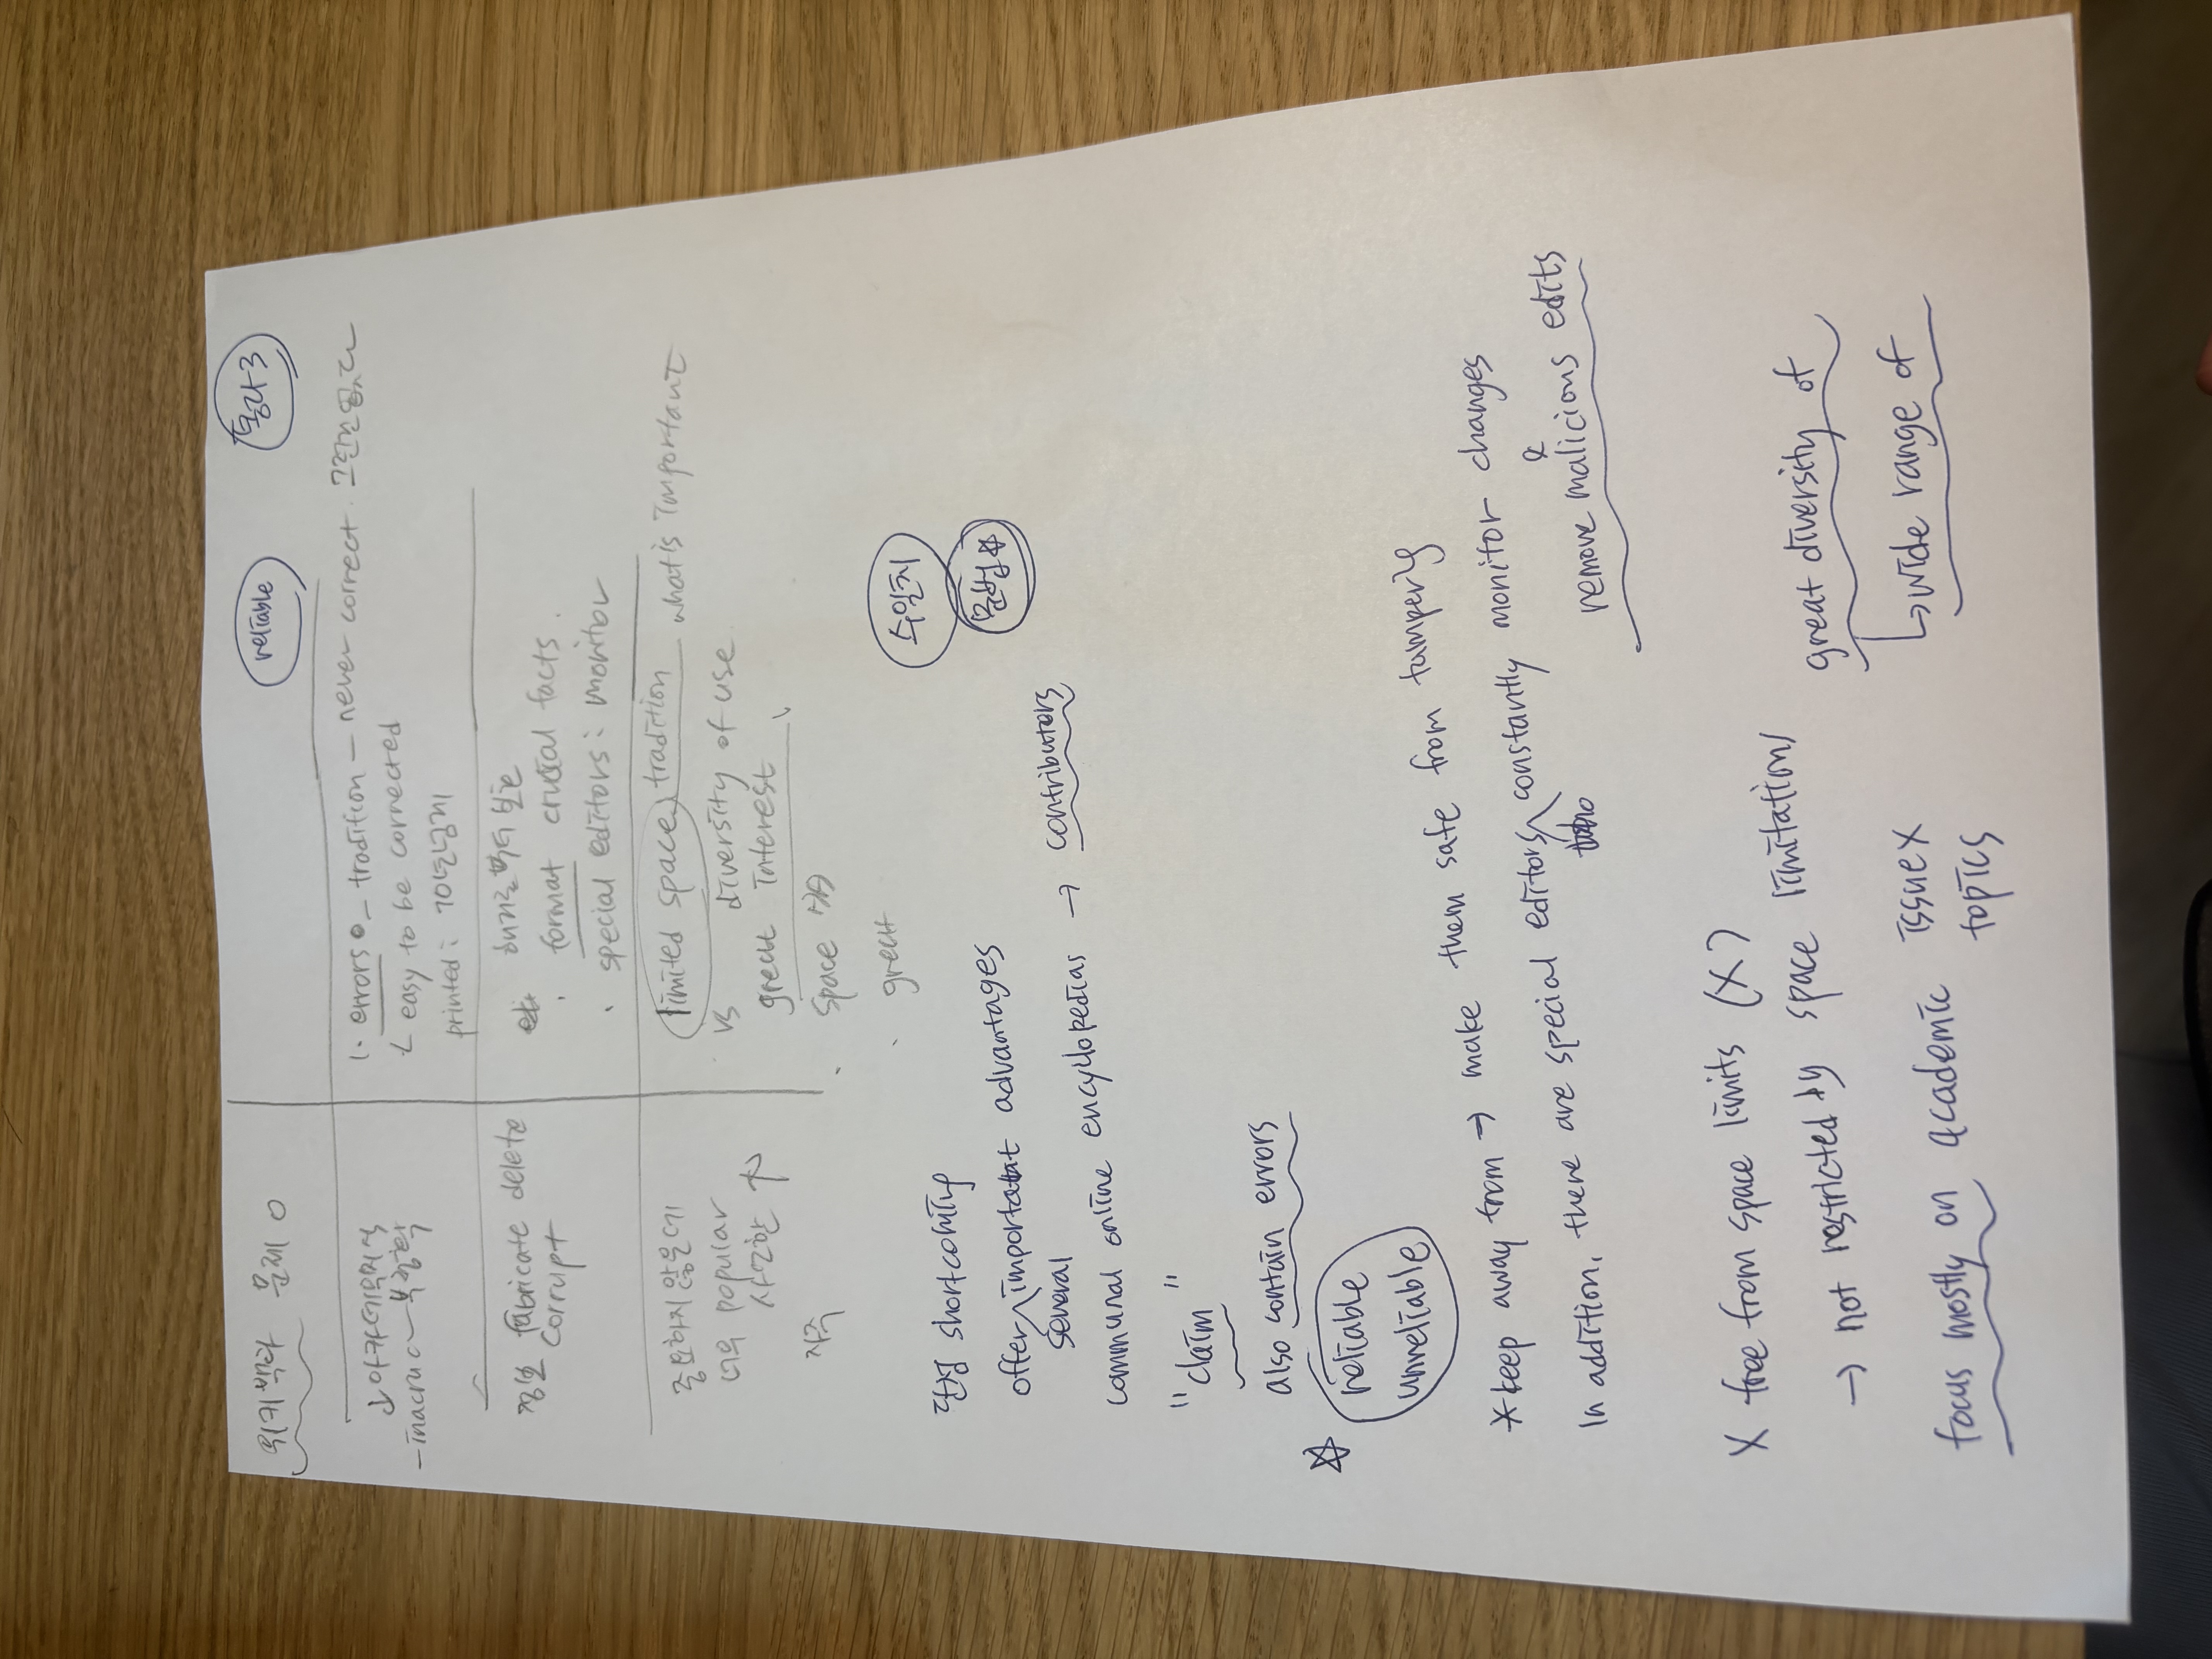 위키백과 문제 O
reliable
통합3
↓ 아카데믹에서
- inacru ~ 부정확
1. errors • - tradition - never correct.
2 easy to be corrected
printed : 10년넘게
정보 fabricate delete
corrupt
해커로부터 보호
· format crucial facts.
· special editors : monitor
중요하지 않은데
너무 popular
사소한 ↑
limited space, tradition what is important
vs diversity of use
great interest
space
· great
수일치
문법☆
단점 shortcoming
offer important advantages
several
communal online encyclopedias → contributors
"claim"
also contain errors
☆ reliable
unreliable
* keep away from → make them safe from tampering
In addition, there are special editors constantly monitor changes
who
& remove malicious edits
X free from space limits (X)
→ not restricted by space limitation
great diversity of
↳ wide range of
focus mostly on academic issue X
topics